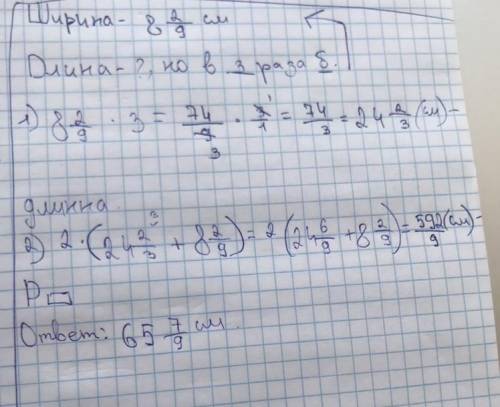 Ширина - 8 2/9 см
Длина - ?, но в 3 раза б.
1) 8 2/9 · 3 = 74/9 3 · 3/1 1 = 74/3 = 24 2/3 (см) -
длинна
2) 2 · (24 2/3 3 + 8 2/9) = 2 (24 6/9 + 8 2/9) = 592/9 (см) -
P▭
Ответ: 65 7/9 см.